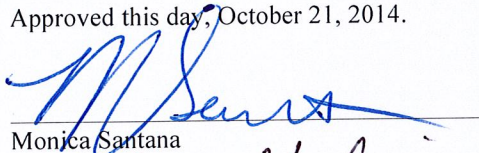 Approved this day, October 21, 2014.
M Santana
Monica Santana